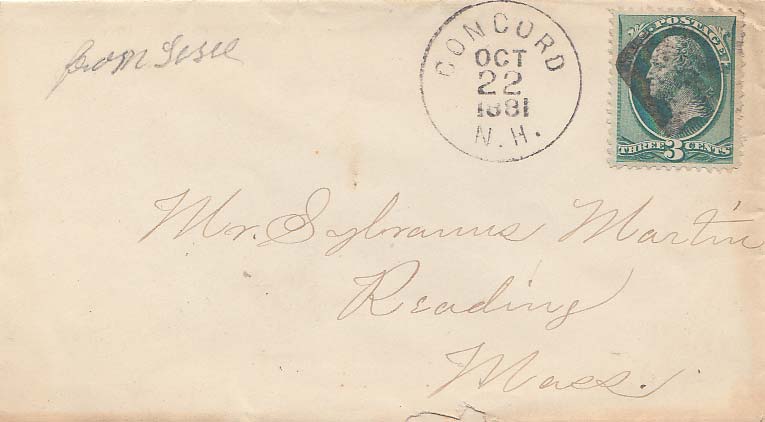 from
CONCORD
OCT
22
1881
N.H.
U.S. POSTAGE
THREE 3 CENTS
Mr. Sylvanus Martin
Reading
Mass.